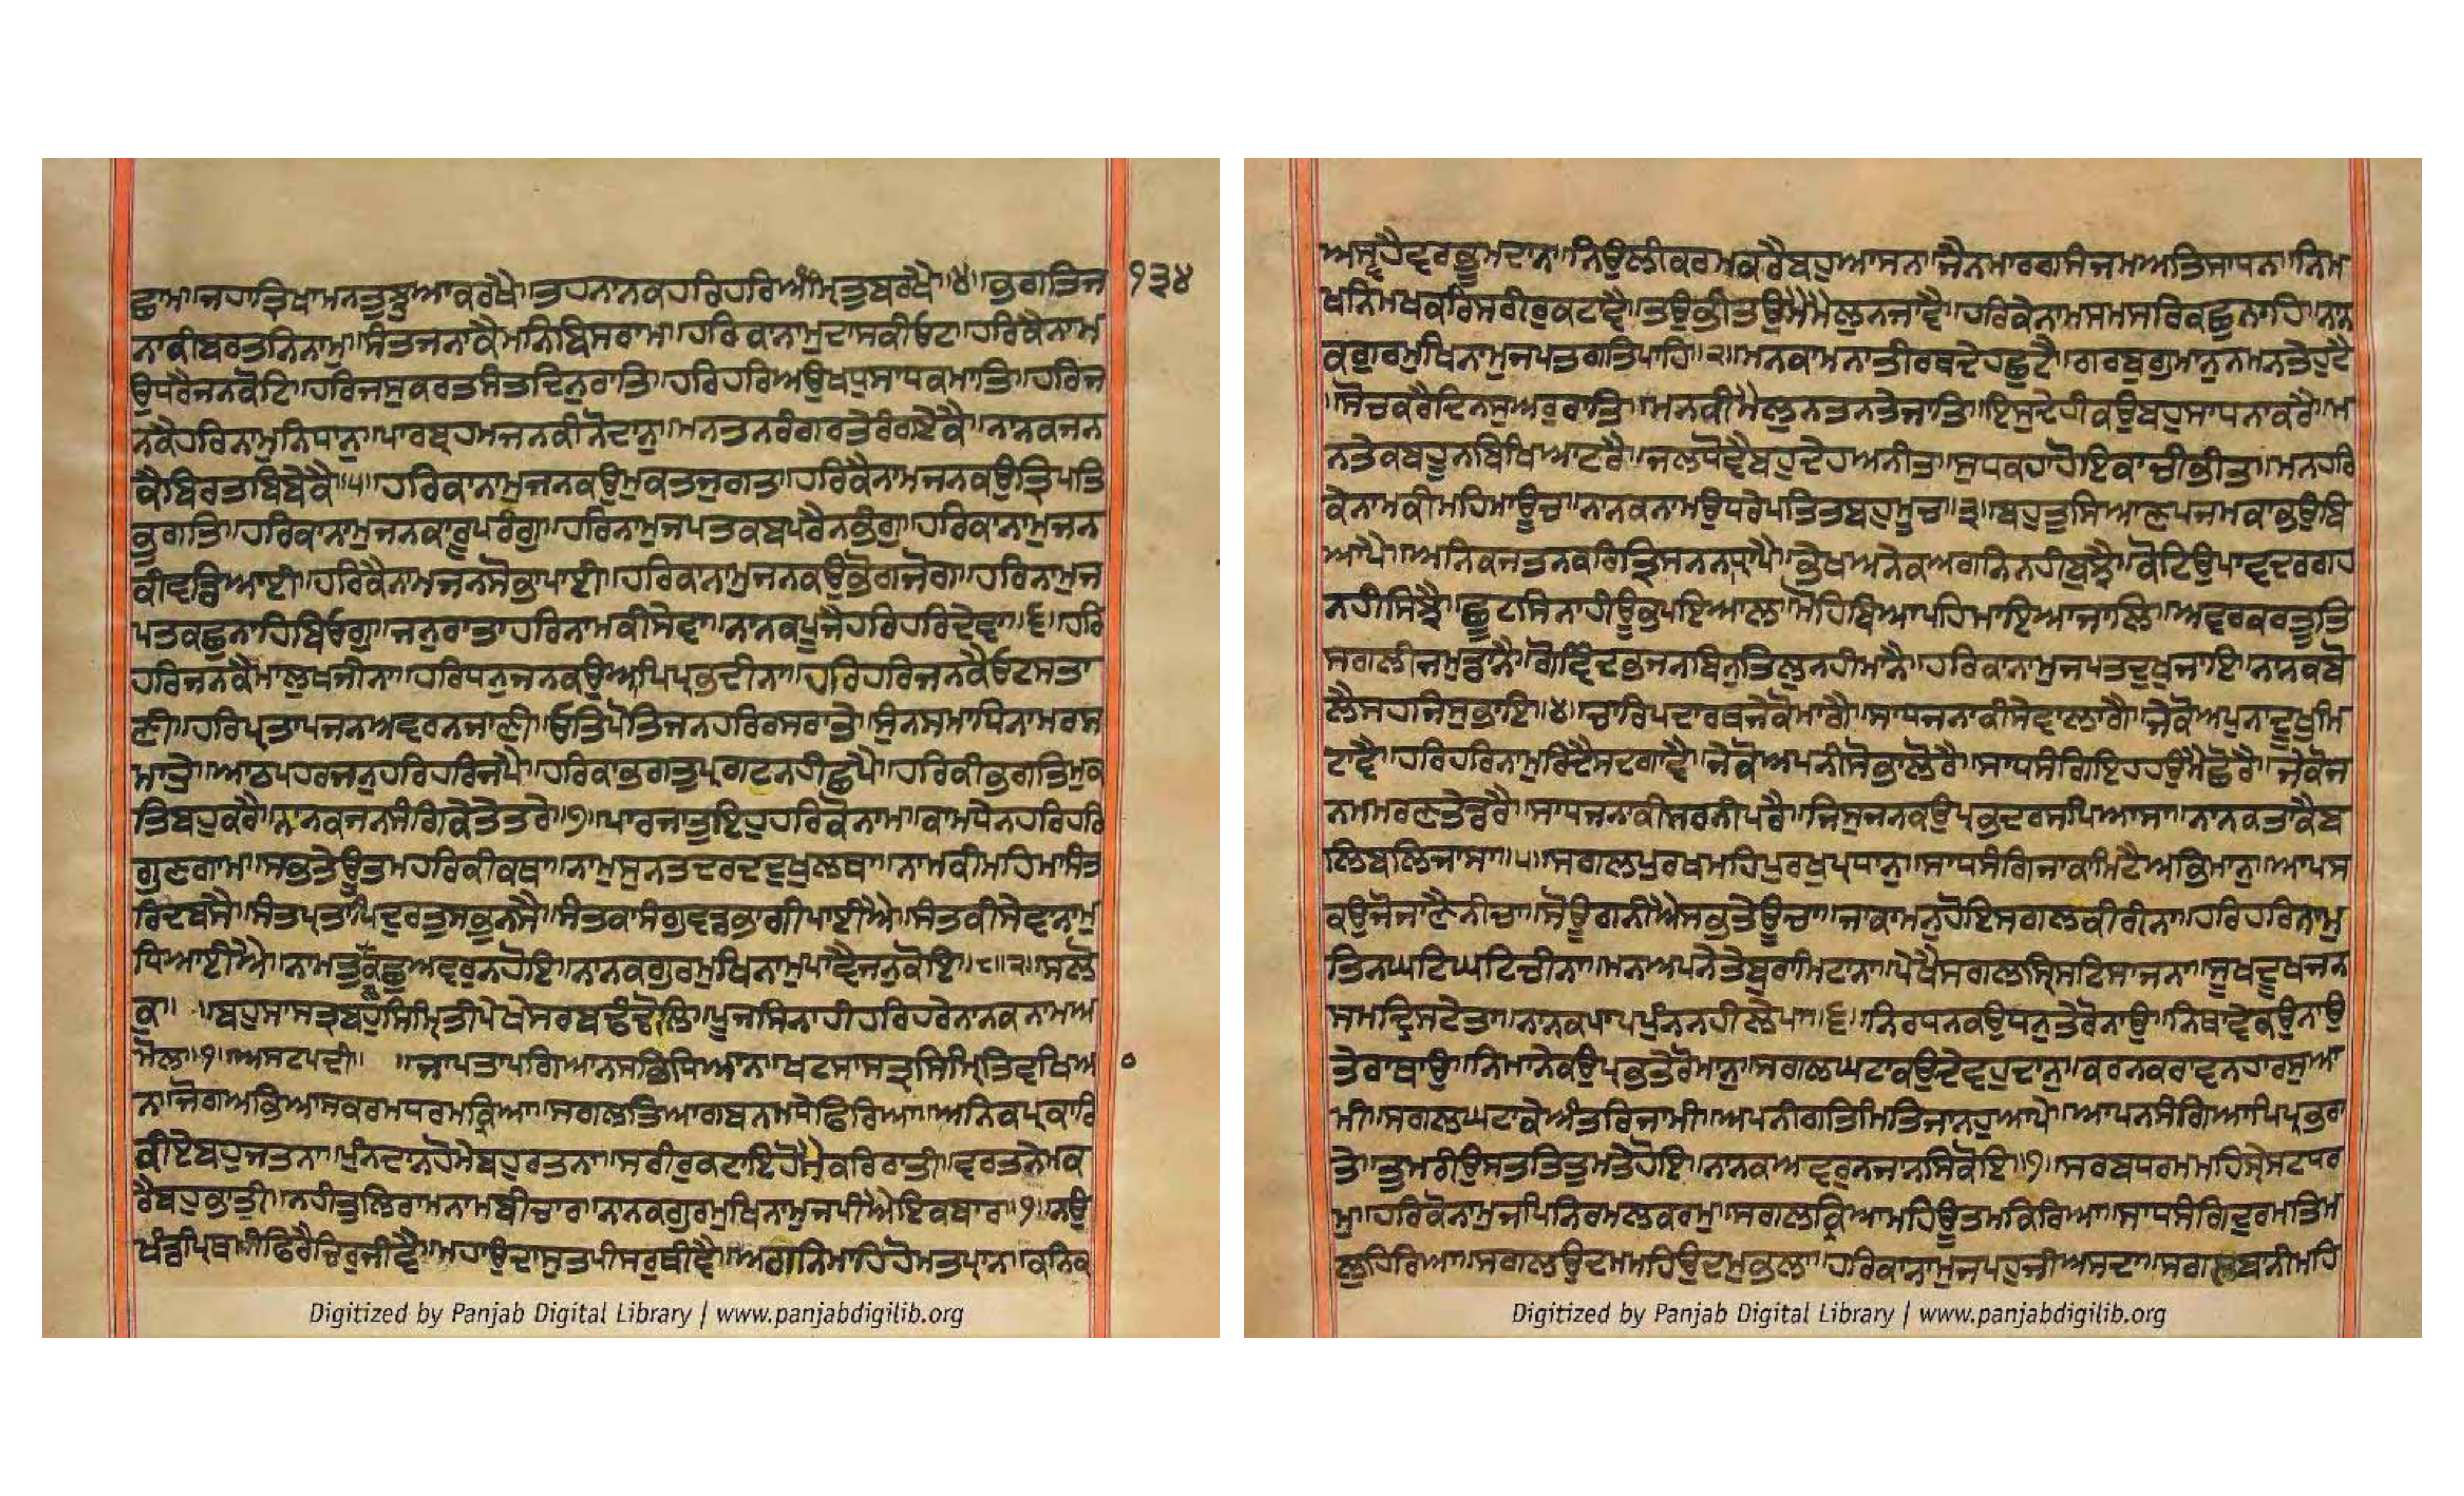 ਛਾਮਾ॥ਜਹਾਤ੍ਰਿਖਾਮਨਤੁਝੁਆਕਰਖੈ॥ਤਹਨਾਨਕਹਰਿਹਰਿਅੰਮ੍ਰਿਤੁਬਰਖੈ॥੪॥ਭਗਤਿਜ
੧੩੪
ਨਾਕੀਬਰਤਨਿਨਾਮੁ॥ਸੰਤਜਨਾਕੈਮਨਿਬਿਸਰਾਮਾ॥ਹਰਿਕਾਨਾਮੁਦਾਸਕੀਓਟਾ॥ਹਰਿਕੈਨਾਮ
ਉਧਰੈਜਨਕੋਟਿ॥ਹਰਿਜਸੁਕਰਤਸੰਤਦਿਨੁਰਾਤਿ॥ਹਰਿਹਰਿਅਉਖਧੁਸਾਧਕਮਾਤਿ॥ਹਰਿਜ
ਨਕੈਹਰਿਨਾਮੁਨਿਧਾਨੁ॥ਪਾਰਬ੍ਰਹਮਜਨਕੀਨੋਦਾਨੁ॥ਮਨਤਨਰੰਗਰਤੇਰੰਗਏਕੈ॥ਨਾਨਕਜਨ
ਕੈਬਿਰਤਬਿਬੇਕੈ॥੫॥ਹਰਿਕਾਨਾਮੁਜਨਕਉਮੁਕਤਜੁਗਤਾ॥ਹਰਿਕੈਨਾਮਜਨਕਉਤ੍ਰਿਪਤਿ
ਭੁਗਤਿ॥ਹਰਿਕਾਨਾਮੁਜਨਕਾਰੂਪਰੰਗੁ॥ਹਰਿਨਾਮੁਜਪਤਕਬਪਰੈਨਭੰਗੁ॥ਹਰਿਕਾਨਾਮੁਜਨ
ਕੀਵਡਿਆਈ॥ਹਰਿਕੈਨਾਮਜਨਸੋਭਾਪਾਈ॥ਹਰਿਕਾਨਾਮੁਜਨਕਉਭੋਗਜੋਗ॥ਹਰਿਨਾਮੁਜ
ਪਤਕਛੁਨਾਹਿਬਿਓਗੁ॥ਜਨੁਰਾਤਾਹਰਿਨਾਮਕੀਸੇਵਾ॥ਨਾਨਕਪੂਜੈਹਰਿਹਰਿਦੇਵਾ॥੬॥ਹਰਿ
ਹਰਿਜਨਕੈਮਾਲੁਖਜੀਨਾ॥ਹਰਿਧਨੁਜਨਕਉਆਪਿਪ੍ਰਭੁਦੀਨਾ॥ਹਰਿਹਰਿਜਨਕੈਓਟਸਤਾ
ਣੀ॥ਹਰਿਪ੍ਰਤਾਪਜਨਅਵਰਨਜਾਣੀ॥ਓਤਿਪੋਤਿਜਨਹਰਿਰਸਰਾਤੇ॥ਸੁੰਨਸਮਾਧਿਨਾਮਰਸ
ਮਾਤੇ॥ਆਠਪਹਰਜਨੁਹਰਿਹਰਿਜਪੈ॥ਹਰਿਕਾਭਗਤੁਪ੍ਰਗਟਨਹੀਛਪੈ॥ਹਰਿਕੀਭਗਤਿਮੁਕ
ਤਿਬਹੁਕਰੈ॥ਨਾਨਕਜਨਸੰਗਿਕੇਤੇਤਰੇ॥੭॥ਪਾਰਜਾਤੁਇਹੁਹਰਿਕੋਨਾਮ॥ਕਾਮਧੇਨਹਰਿਹਰਿ
ਗੁਣਗਾਮ॥ਸਭਤੇਊਤਮਹਰਿਕੀਕਥਾ॥ਨਾਮੁਸੁਨਤਦਰਦਦੁਖਲਥਾ॥ਨਾਮਕੀਮਹਿਮਾਸੰਤ
ਰਿਦਬਸੈ॥ਸੰਤਪ੍ਰਤਾਪਿਦੁਰਤੁਸਭੁਨਸੈ॥ਸੰਤਕਾਸੰਗੁਵਡਭਾਗੀਪਾਈਐ॥ਸੰਤਕੀਸੇਵਨਾਮੁ
ਧਿਆਈਐ॥ਨਾਮਤੁਲਿਕਛੁਅਵਰੁਨਹੋਇ॥ਨਾਨਕਗੁਰਮੁਖਿਨਾਮੁਪਾਵੈਜਨੁਕੋਇ॥੮॥੨॥ਸਲੋ
ਕੁ॥ ॥ਬਹੁਸਾਸਤ੍ਰਬਹੁਸਿਮ੍ਰਿਤੀਪੇਖੇਸਰਬਢੰਢੋਲਿ॥ਪੂਜਸਿਨਾਹੀਹਰਿਹਰੇਨਾਨਕਨਾਮਅ
ਮੋਲ॥੧॥ਅਸਟਪਦੀ॥ ॥ਜਾਪਤਾਪਗਿਆਨਸਭਿਧਿਆਨ॥ਖਟਸਾਸਤ੍ਰਸਿਮ੍ਰਿਤਿਵਖਿਅ
ਨ॥ਜੋਗਅਭਿਆਸਕਰਮਧਰਮਕ੍ਰਿਆ॥ਸਗਲਤਿਆਗਬਨਮਧੇਫਿਰਿਆ॥ਅਨਿਕਪ੍ਰਕਾਰਿ
ਕੀਏਬਹੁਜਤਨਾ॥ਪੁੰਨਦਾਨਹੋਮੇਬਹੁਰਤਨਾ॥ਸਰੀਰੁਕਟਾਇਹੋਮੈਕਰਿਰਾਤੀ॥ਵਰਤਨੇਮਕ
ਰੈਬਹੁਭਾਤੀ॥ਨਹੀਤੁਲਿਰਾਮਨਾਮਬੀਚਾਰ॥ਨਾਨਕਗੁਰਮੁਖਿਨਾਮੁਜਪੀਐਇਕਬਾਰ॥੧॥ਨਉ
ਖੰਡਪ੍ਰਿਥਮੀਫਿਰੈਚਿਰੁਜੀਵੈ॥ਮਹਾਉਦਾਸੁਤਪੀਸਰੁਥੀਵੈ॥ਅਗਨਿਮਾਹਿਹੋਮਤਪ੍ਰਾਨ॥ਕਨਿਕ
Digitized by Panjab Digital Library | www.panjabdigilib.org
ਅਸ੍ਵਹੈਵਰਭੂਮਦਾਨ॥ਨਿਉਲੀਕਰਮਕਰੈਬਹੁਆਸਨ॥ਜੈਨਮਾਰਗਸੰਜਮਅਤਿਸਾਧਨ॥ਨਿਮ
ਖਨਿਮਖਕਰਿਸਰੀਰੁਕਟਾਵੈ॥ਤਉਭੀਤਉਮੈਮੈਲੁਨਜਾਵੈ॥ਹਰਿਕੇਨਾਮਸਮਸਰਿਕਛੁਨਾਹਿ॥ਨਾਨ
ਕਗੁਰਮੁਖਿਨਾਮੁਜਪਤਗਤਿਪਾਹਿ॥੨॥ਮਨਕਾਮਨਾਤੀਰਥਦੇਹਛੁਟੈ॥ਗਰਬੁਗੁਮਾਨੁਨਮਨਤੇਹੁਟੈ
॥ਸੋਚਕਰੈਦਿਨਸੁਅਰੁਰਾਤਿ॥ਮਨਕੀਮੈਲੁਨਤਨਤੇਜਾਤਿ॥ਇਸੁਦੇਹੀਕਉਬਹੁਸਾਧਨਾਕਰੈ॥ਮ
ਨਤੇਕਬਹੂਨਬਿਖਿਆਟਰੈ॥ਜਲਧੋਵੈਬਹੁਦੇਹਅਨੀਤ॥ਸੁਧਕਹਾਹੋਇਕਾਚੀਭੀਤ॥ਮਨਹਰਿ
ਕੇਨਾਮਕੀਮਹਿਮਾਊਚ॥ਨਾਨਕਨਾਮਉਧਰੇਪਤਿਤਬਹੁਮੂਚ॥੩॥ਬਹੁਤੁਸਿਆਣਪਜਮਕਾਭਉਬਿ
ਆਪੈ॥ਅਨਿਕਜਤਨਕਰਿਤ੍ਰਿਸਨਨਧ੍ਰਾਪੈ॥ਭੇਖਅਨੇਕਅਗਨਿਨਹੀਬੁਝੈ॥ਕੋਟਿਉਪਾਵਦਰਗਹ
ਨਹੀਸਿਝੈ॥ਛੂਟਸਿਨਾਹੀਊਭਪਇਆਲ॥ਮੋਹਿਬਿਆਪਹਿਮਾਇਆਜਾਲਿ॥ਅਵਰਕਰਤੂਤਿ
ਸਗਲੀਜਮੁਡਾਨੈ॥ਗੋਵਿੰਦਭਜਨਬਿਨੁਤਿਲੁਨਹੀਮਾਨੈ॥ਹਰਿਕਾਨਾਮੁਜਪਤਦੁਖੁਜਾਇ॥ਨਾਨਕਬੋ
ਲੈਸਹਜਿਸੁਭਾਇ॥੪॥ਚਾਰਿਪਦਾਰਥਜੇਕੋਮਾਗੈ॥ਸਾਧਜਨਾਕੀਸੇਵਾਲਾਗੈ॥ਜੇਕੋਅਪੁਨਾਦੂਖੁਮਿ
ਟਾਵੈ॥ਹਰਿਹਰਿਨਾਮੁਰਿਦੈਸਦਗਾਵੈ॥ਜੇਕੋਅਪਨੀਸੋਭਾਲੋਰੈ॥ਸਾਧਸੰਗਿਇਹਹਉਮੈਛੋਰੈ॥ਜੇਕੋਜ
ਨਮਮਰਣਤੇਡਰੈ॥ਸਾਧਜਨਾਕੀਸਰਨੀਪਰੈ॥ਜਿਸੁਜਨਕਉਪ੍ਰਭਦਰਸਪਿਆਸਾ॥ਨਾਨਕਤਾਕੈਬ
ਲਿਬਲਿਜਾਸਾ॥੫॥ਸਗਲਪੁਰਖਮਹਿਪੁਰਖੁਪ੍ਰਧਾਨੁ॥ਸਾਧਸੰਗਿਜਾਕਾਮਿਟੈਅਭਿਮਾਨੁ॥ਆਪਸ
ਕਉਜੋਜਾਣੈਨੀਚਾ॥ਸੋਊਗਨੀਐਸਭਤੇਊਚਾ॥ਜਾਕਾਮਨੁਹੋਇਸਗਲਕੀਰੀਨਾ॥ਹਰਿਹਰਿਨਾਮੁ
ਤਿਨਘਟਿਘਟਿਚੀਨਾ॥ਮਨਅਪਨੈਤੇਬੁਰਾਮਿਟਾਨਾ॥ਪੇਖੈਸਗਲਸ੍ਰਿਸਟਿਸਾਜਨਾ॥ਸੂਖਦੂਖਜਨ
ਸਮਦ੍ਰਿਸਟੇਤਾ॥ਨਾਨਕਪਾਪਪੁੰਨਨਹੀਲੇਪਾ॥੬॥ਨਿਰਧਨਕਉਧਨੁਤੇਰੋਨਾਉ॥ਨਿਥਾਵੇਕਉਨਾਉ
ਤੇਰਾਥਾਉ॥ਨਿਮਾਨੇਕਉਪ੍ਰਭਤੇਰੋਮਾਨੁ॥ਸਗਲਘਟਾਕਉਦੇਵਹੁਦਾਨੁ॥ਕਰਨਕਰਾਵਨਹਾਰਸੁਆ
ਮੀ॥ਸਗਲਘਟਾਕੇਅੰਤਰਿਜਾਮੀ॥ਅਪਨੀਗਤਿਮਿਤਿਜਾਨਹੁਆਪੇ॥ਆਪਨਸੰਗਿਆਪਿਪ੍ਰਭਰਾ
ਤੇ॥ਤੁਮਰੀਉਸਤਤਿਤੁਮਤੇਹੋਇ॥ਨਾਨਕਅਵਰੁਨਜਾਨਸਿਕੋਇ॥੭॥ਸਰਬਧਰਮਮਹਿਸ੍ਰੇਸਟਧਰ
ਮੁ॥ਹਰਿਕੋਨਾਮੁਜਪਿਨਿਰਮਲਕਰਮੁ॥ਸਗਲਕ੍ਰਿਆਮਹਿਊਤਮਕਿਰਿਆ॥ਸਾਧਸੰਗਿਦੁਰਮਤਿਮ
ਲੁਹਿਰਿਆ॥ਸਗਲਉਦਮਮਹਿਉਦਮੁਭਲਾ॥ਹਰਿਕਾਨਾਮੁਜਪਹੁਜੀਅਸਦਾ॥ਸਗਲਬਾਨੀਮਹਿ
Digitized by Panjab Digital Library | www.panjabdigilib.org